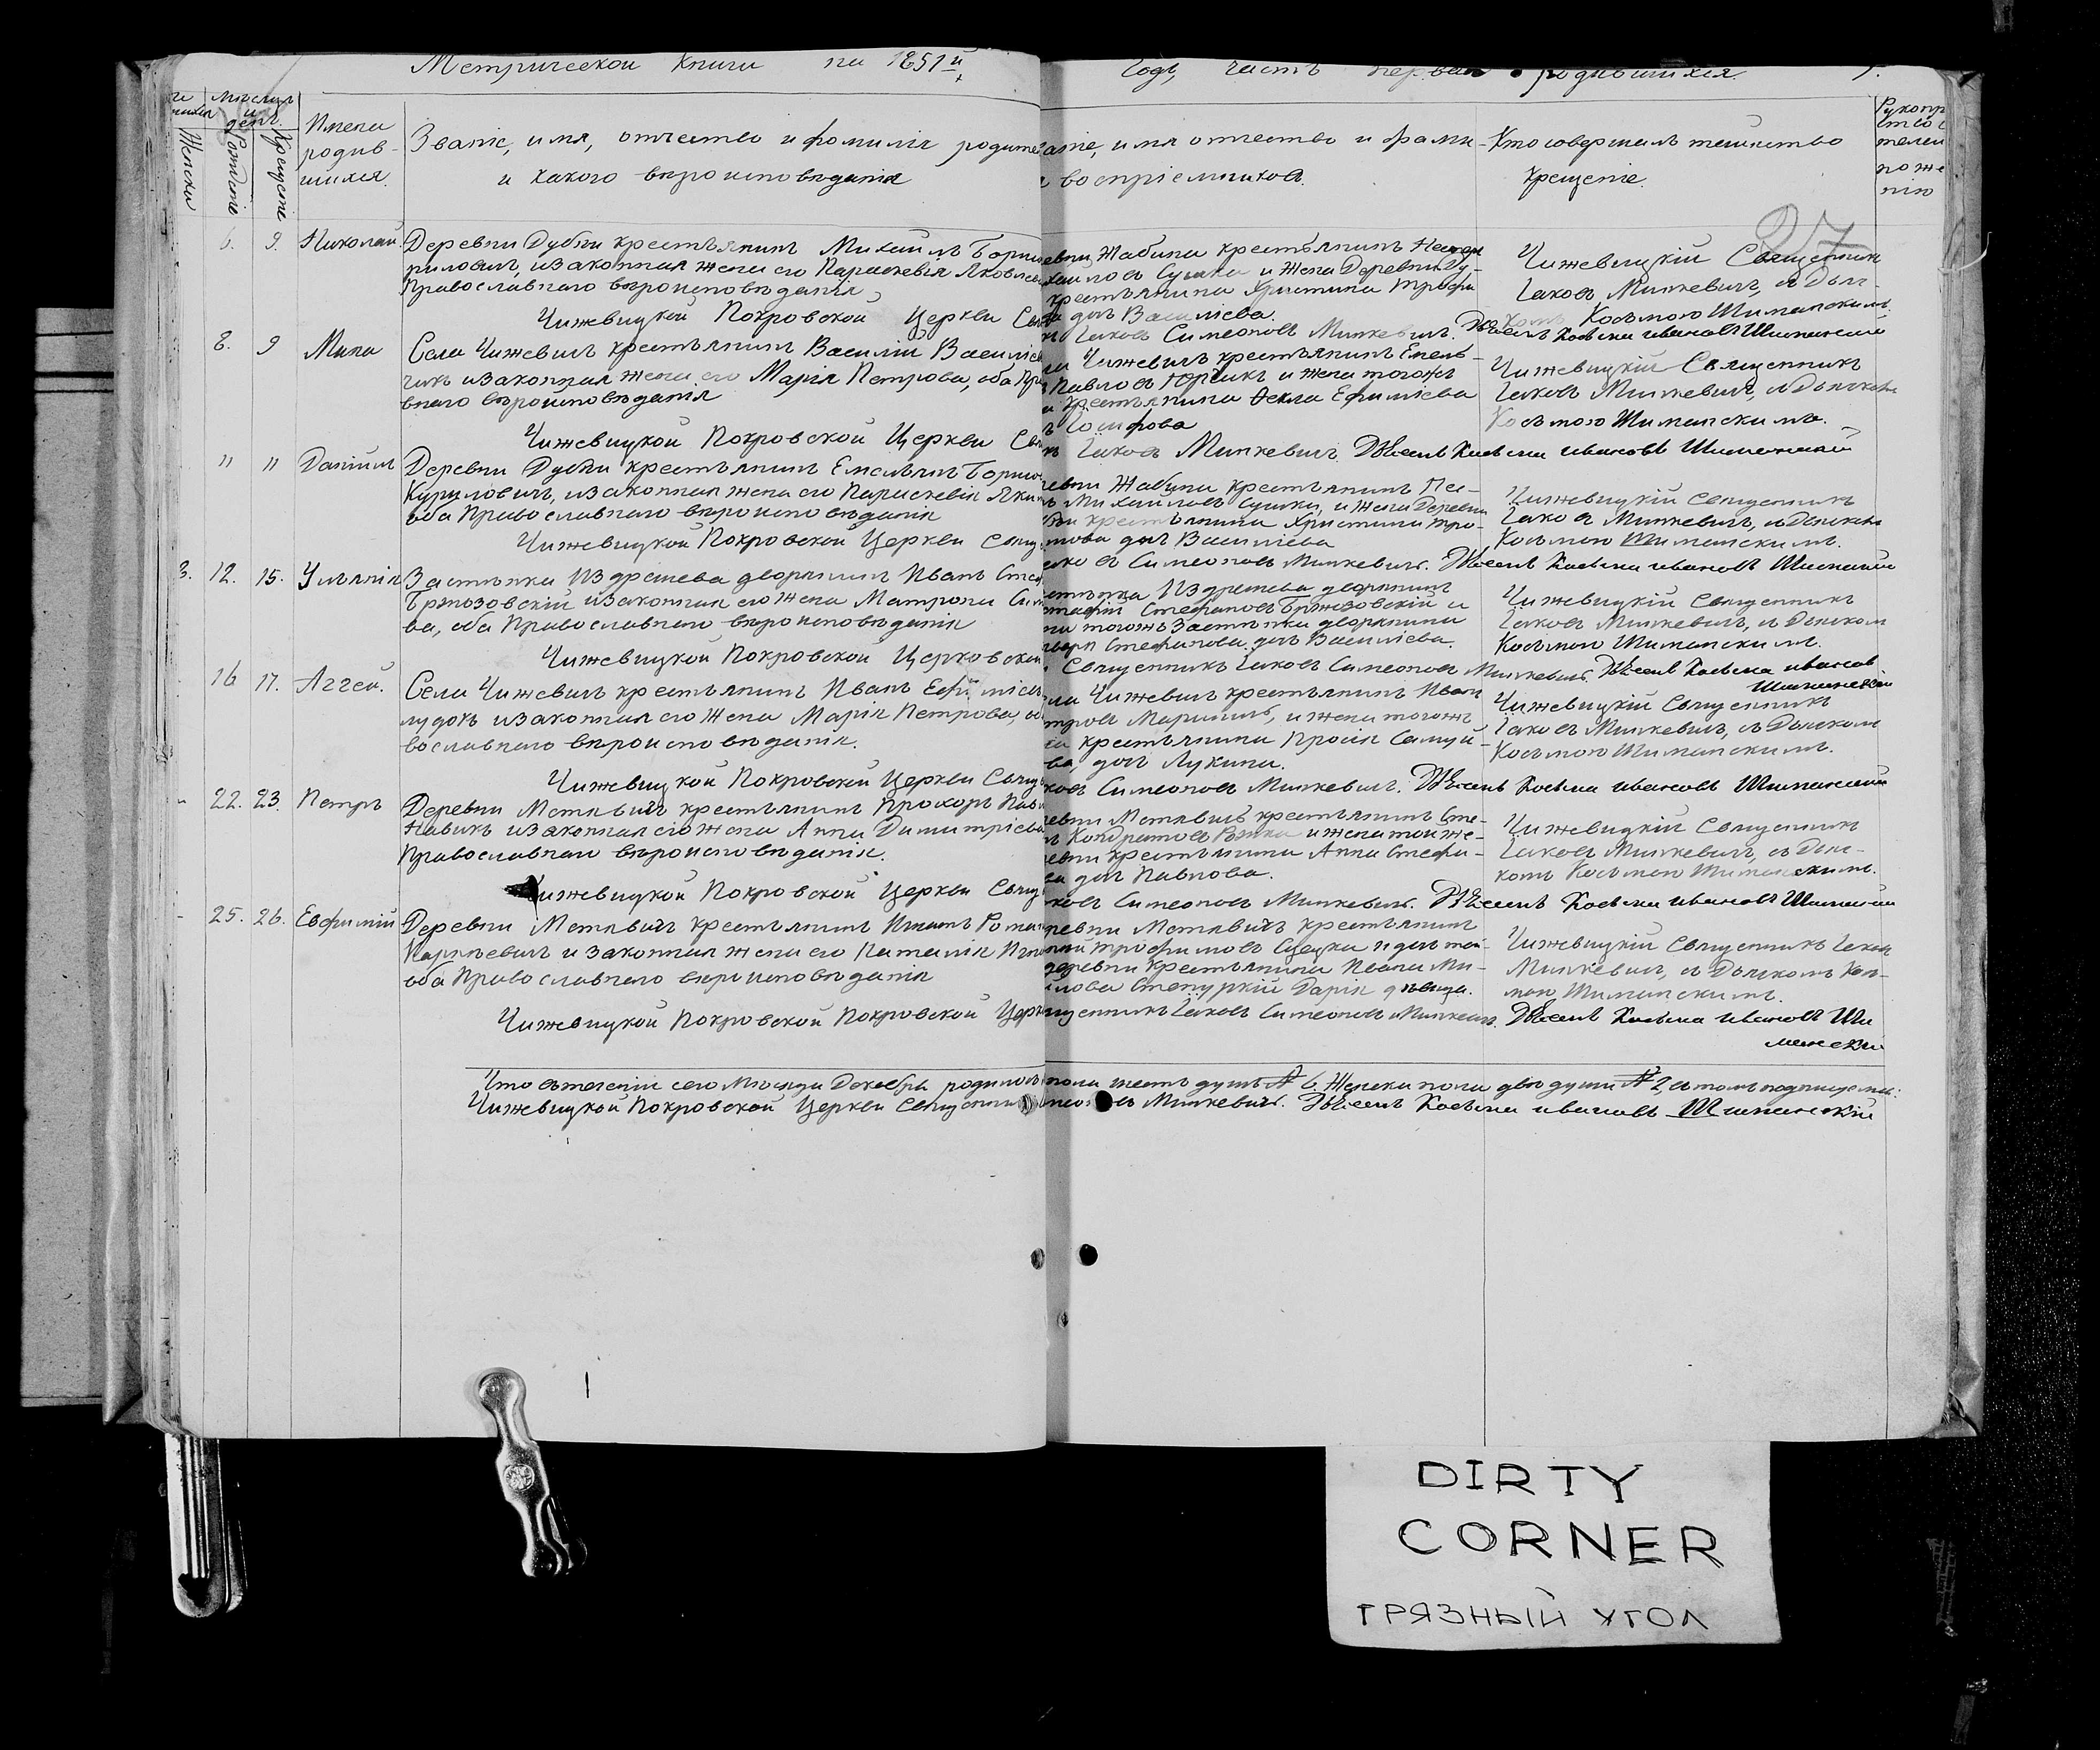 Метрической книги на 1851й
годъ, часть первая о родившихся
Мѣсяцъ
и
день.
Рожденіе
Крещеніе
Женска
Имена
родив-
шихся.
Званіе, имя, отчество и фамилія родите
и какого вѣроисповѣданія
аніе, имя отчество и фами-
воспріемниковъ.
Кто совершалъ таинство
крещеніе.
27
6. 9. Николай.
Деревни Дубни крестьянинъ Михаилъ
риловичъ, и законная жена его Параскевія Яковлева
Православнаго вѣроисповѣданія
Чижевицкой Покровской Церкви
евни Жабина крестьянинъ
хайловъ Сушка и жена Деревни Ду-
крестьянина Христина Трофи
дочь Василіева.
Іаковъ Симеоновъ Минкевичъ. Дьячекъ Косьма Ивановъ Шиманскій
Чижевицкій Священник
Іаковъ Минкевичъ, съ Дьяч-
комъ Косьмою Шиманскимъ.
8. 9 Мина
Села Чижевичъ крестьянинъ Василій Василіев
чикъ и законная жена его Марія Петрова, оба Пра
внаго вѣроисповѣданія
Чижевицкой Покровской Церкви
Чижевичъ крестьянинъ Емель-
Павловъ Юрчикъ и жена тогожъ
крестьянина Ѳекла Ефиміева
Іосифова
Іаковъ Минкевичъ. Дьячекъ Косьма Ивановъ Шиманскій
Чижевицкій Священникъ
Іаковъ Минкевичъ, съ Дьячком
Косьмою Шиманскимъ.
11 11 Даніилъ
Деревни Дубни крестьянинъ Емельянъ
Куриловичъ, и законная жена его Параскевія Яки
оба Православнаго вѣроисповѣданія
Чижевицкой Покровской Церкви Свящ
евни Жабина крестьянинъ Нес-
Михайловъ Сушка, и жена Деревни
бни крестьянина Христина Тро-
мова дочь Василіева
ковъ Симеоновъ Минкевичъ. Дьячекъ Косьма Ивановъ Шиманскій
Чижевицкій Священникъ
Іаковъ Минкевичъ, съ Дьячком
Косьмою Шиманскимъ.
3. 12. 15. Ульянія
Застѣнка Издрешева дворянинъ Иванъ Стеф
Бржозовскій и законная его жена Матрона Сим
ва, оба Православнаго вѣроисповѣданія
Чижевицкой Покровской Церковской
стѣнка Издрешева дворянинъ
Стефановъ Бржозовскій и
на тогожъ Застѣнка дворянина
Стефанова дочь Василіева.
Священникъ Іаковъ Симеоновъ Минкевичъ. Дьячекъ Косьма Ивановъ
Шиманскій
Чижевицкій Священникъ
Іаковъ Минкевичъ, съ Дьячком
Косьмою Шиманскимъ.
16 17. Аггей.
Села Чижевичъ крестьянинъ Иванъ Ефиміев
лудокъ и законная его жена Марія Петрова, об
вославнаго вѣроисповѣданія.
Чижевицкой Покровской Церкви Свящ
ла Чижевичъ крестьянинъ Иванъ
тровъ Мариничъ, и жена тогожъ
ла крестьянина Просія Самуй-
ва, дочь Лукина.
ковъ Симеоновъ Минкевичъ. Дьячекъ Косьма Ивановъ Шиманскій
Чижевицкій Священникъ
Іаковъ Минкевичъ, съ Дьячкомъ
Косьмою Шиманскимъ.
22. 23. Петръ
Деревни Метявичъ крестьянинъ Прохоръ Пав
Навикъ и законная его жена Анна Димитріева
Православнаго вѣроисповѣданія.
Чижевицкой Покровской Церкви Свящ
евни Метявичъ крестьянинъ Сте-
Кондратовъ и жена той же-
евни крестьянина Анна Стефа-
ва дочь Павлова.
ковъ Симеоновъ Минкевичъ. Дьячекъ Косьма Ивановъ Шиманскій
Чижевицкій Священникъ
Іаковъ Минкевичъ, съ Дьяч-
комъ Косьмою Шиманскимъ.
25. 26. Евфимій
Деревни Метявичъ крестьянинъ Игнатъ Роман
и законная жена его Наталія Игна
оба Православнаго вѣроисповѣданія
Чижевицкой Покровской Покровской Церк
ревни Метявичъ крестьянинъ
Трофимовъ и дочь той-
деревни крестьянина Ивана Ми-
лова Дарія дѣвица.
щенникъ Іаковъ Симеоновъ Минкевичъ. Дьячекъ Косьма Ивановъ Ши
манскій
Чижевицкій Священникъ Іаковъ
Минкевичъ, съ Дьячкомъ Кось-
мою Шиманскимъ.
Что въ теченіи сего Мѣсяца Декабря родилось пола шесть душъ № 6. Женска пола двѣ души № 2, въ томъ подписуемся:
Чижевицкой Покровской Церкви Священникъ Минкевичъ. Дьячекъ Косьма Ивановъ Шиманскій
DIRTY
CORNER
ГРЯЗНЫЙ УГОЛ